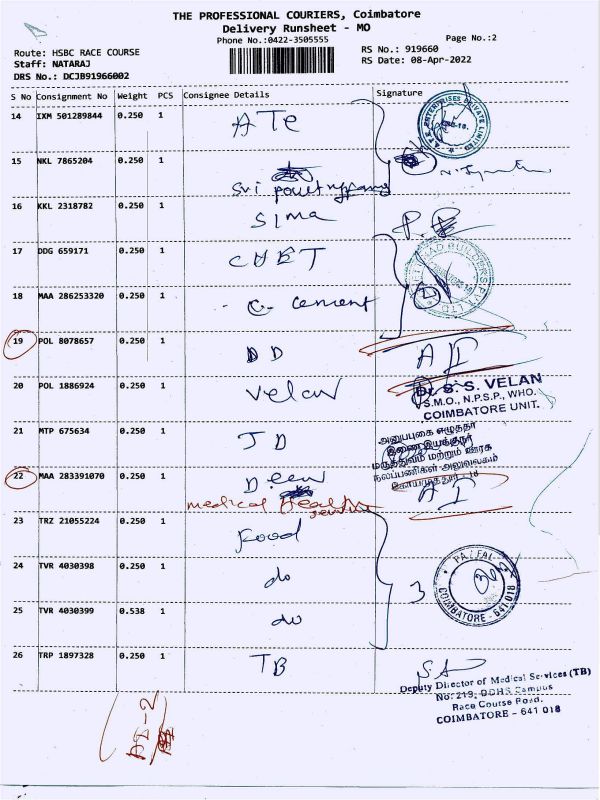 THE PROFESSIONAL COURIERS, Coimbatore
Delivery Runsheet - MO
Phone No.:0422-3505555
Page No.:2
Route: HSBC RACE COURSE
RS No.: 919660
Staff: NATARAJ
RS Date: 08-Apr-2022
DRS No.: DCJB91966002
S No Consignment No Weight PCS Consignee Details Signature
14 IXM 501289844 0.250 1 ATE
A.T.E. ENTERPRISES PRIVATE LIMITED
15 NKL 7865204 0.250 1
Sri
16 KKL 2318782 0.250 1 SIMA
17 DDG 659171 0.250 1
18 MAA 286253320 0.250 1 cement
19 POL 8078657 0.250 1 DD AI
20 POL 1886924 0.250 1 Velan
Dr. S. S. VELAN
S.M.O., N.P.S.P., WHO.
COIMBATORE UNIT.
21 MTP 675634 0.250 1 JD
அனுப்புகை எழுத்தர்
இணை இயக்குநர்
மருத்துவம் மற்றும் ஊரக
நலப்பணிகள் அலுவலகம்
22 MAA 283391070 0.250 1 Deen AI
medical Health
23 TRZ 21055224 0.250 1 Food
24 TVR 4030398 0.250 1 do
3
COIMBATORE - 641 018
25 TVR 4030399 0.538 1 do
26 TRP 1897328 0.250 1 TB
Deputy Director of Medical Services (TB)
No: 219, DDHS Campus
Race Course Road,
COIMBATORE - 641 018
AI-2